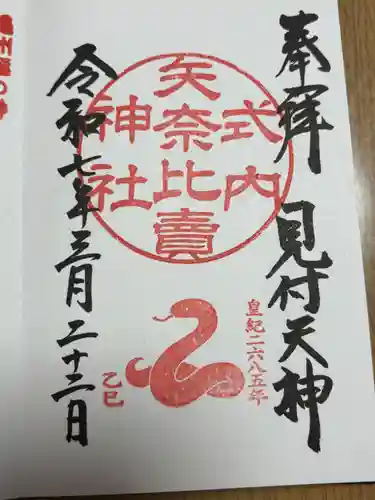 奉拝 見付天神
式内
矢奈比賣
神社
皇紀二六八五年
乙巳
令和七年三月二十二日